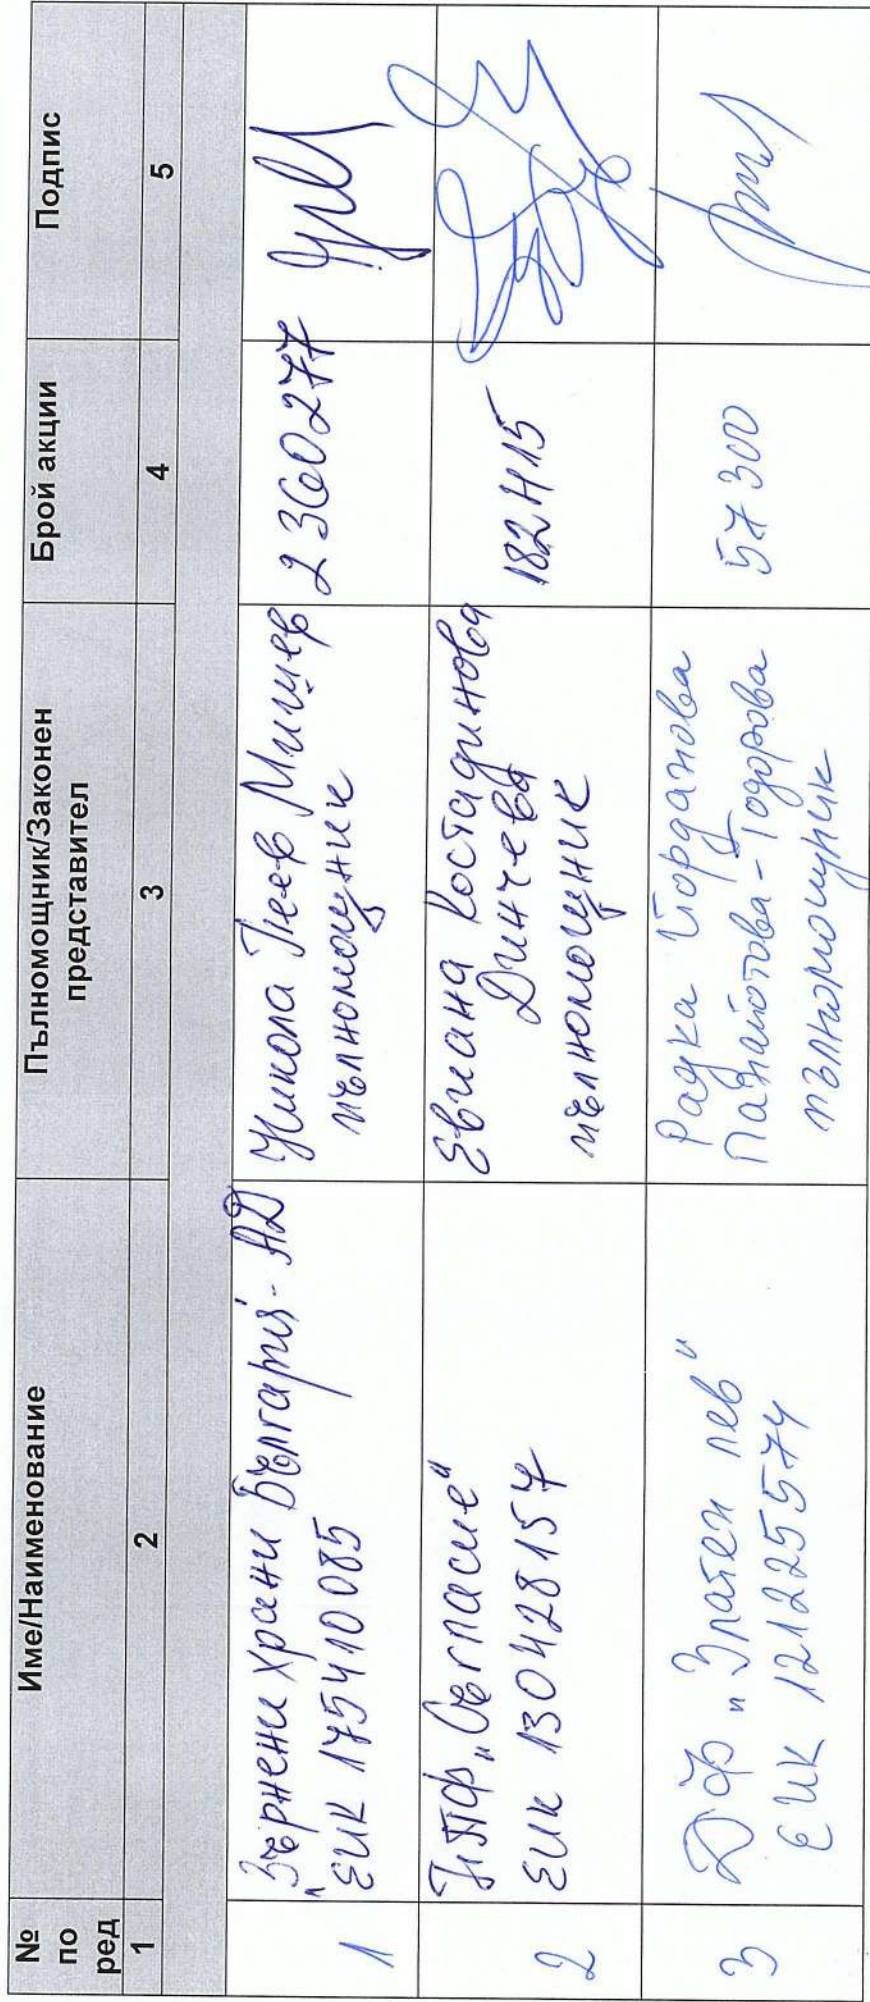 № по ред
Име/Наименование
Пълномощник/Законен представител
Брой акции
Подпис
1
2
3
4
5
1
"Зърнени храни България" АД
ЕИК 175410085
Никола Пеев Мишев
пълномощник
2360277
2
"Съгласие"
ЕИК 130428157
Евиана Костадинова
Динчева
пълномощник
182415
3
ДФ "Златен лев"
ЕИК 121225574
Радка Йорданова
Панайотова-Тодорова
пълномощник
57300